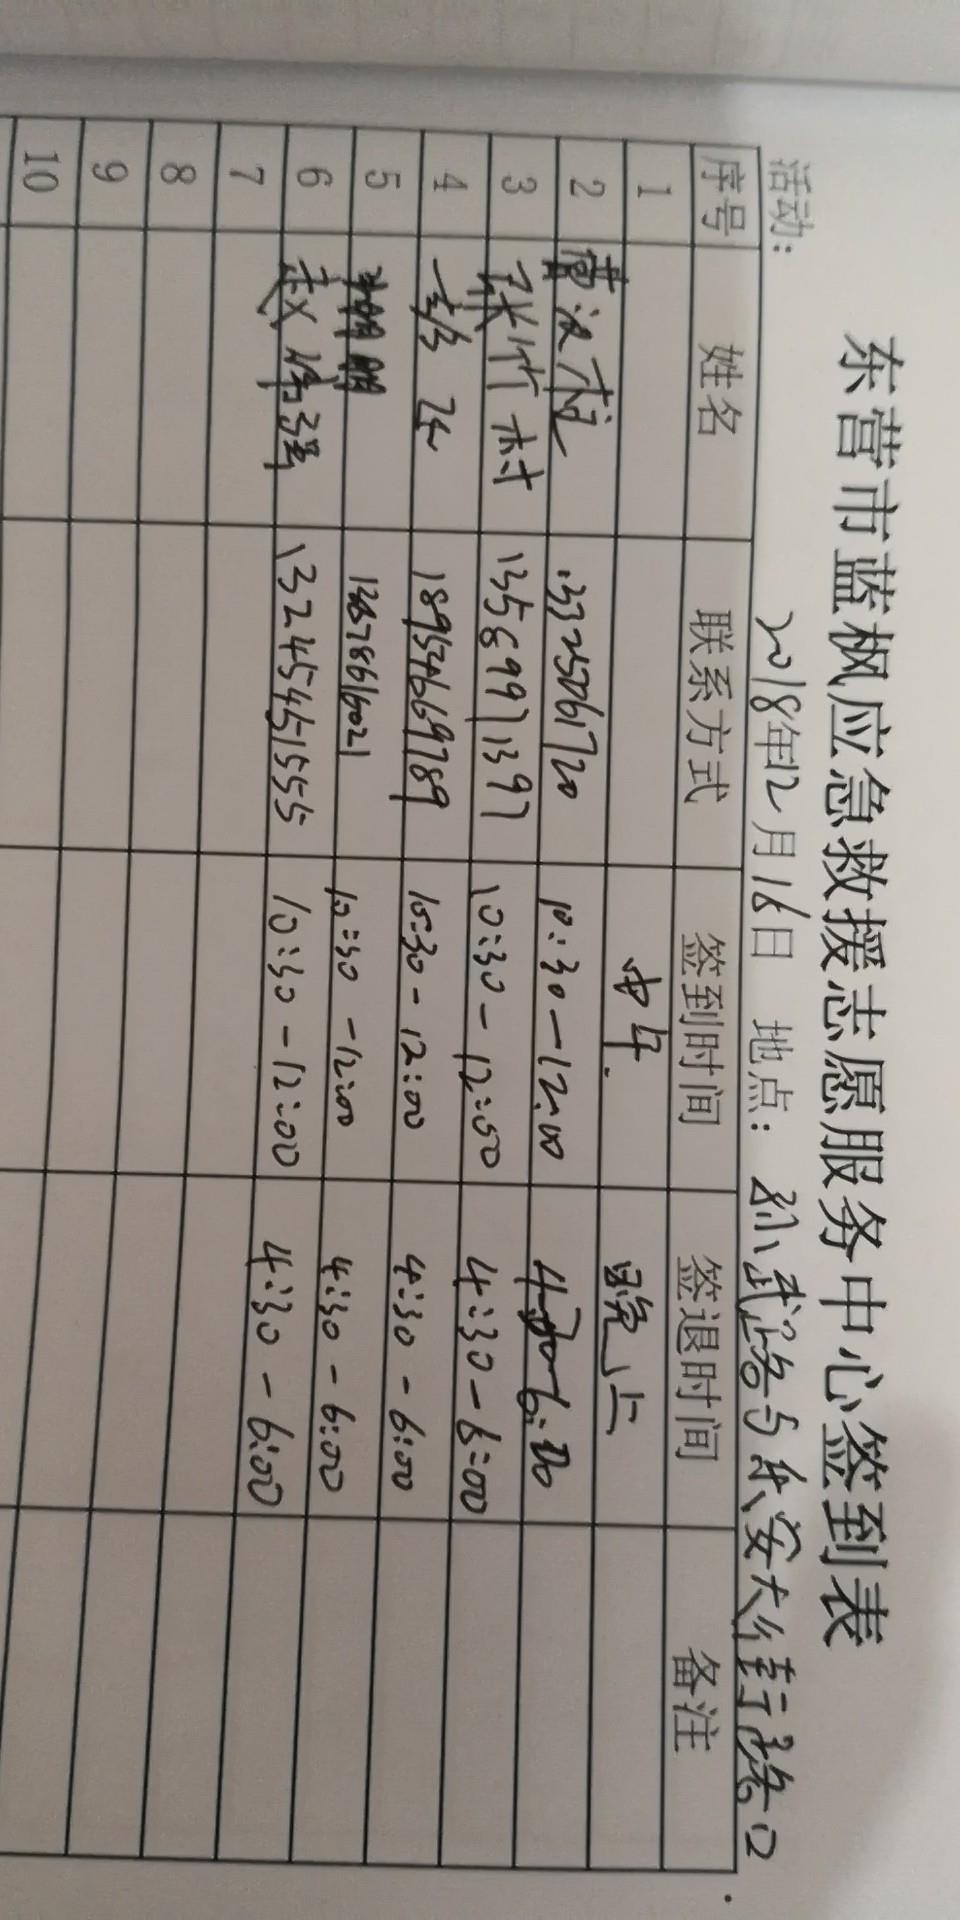 东营市蓝枫应急救援志愿服务中心签到表
活动: 2018年12月16日 地点: 孙武路与乐安大街路口
序号 姓名 联系方式 签到时间 签退时间 备注
1 中午. 晚上
2 13325061720 10:30-12:00 4:30-6:00
3 张竹村 13589971397 10:30-12:00 4:30-6:00
4 18954669789 10:30-12:00 4:30-6:00
5 10:30-12:00 4:30-6:00
6 赵伟强 13245451555 10:30-12:00 4:30-6:00
7
8
9
10